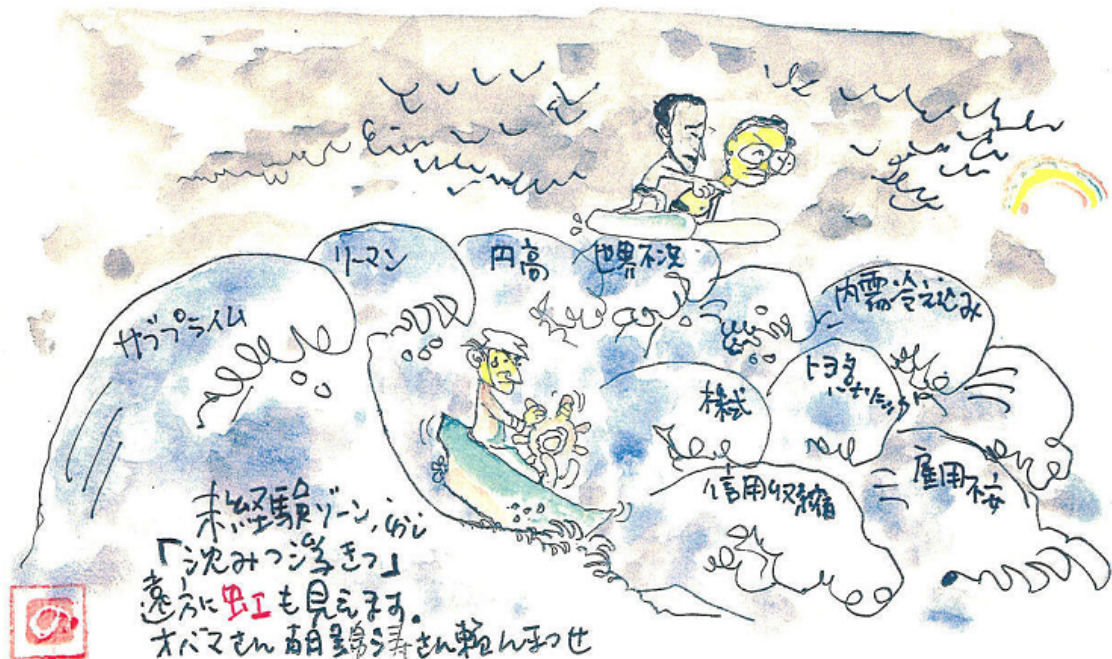 サブプライム
リーマン
円高
世界不況
内需冷え込み
株式
トヨタ
信用収縮
雇用不安
未経験ゾーン、
「沈みつ浮きつ」
遠方に虹も見えます。
オバマさん胡錦濤さん頼んまっせ
の